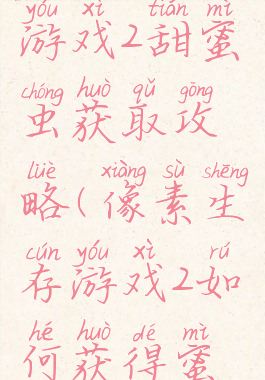 yóu xì tián mì
游戏2甜蜜
chóng huò qǔ gōng
虫获取攻
lüè xiàng sù shēng
略(像素生
cún yóu xì rú
存游戏2如
hé huò dé mì
何获得蜜